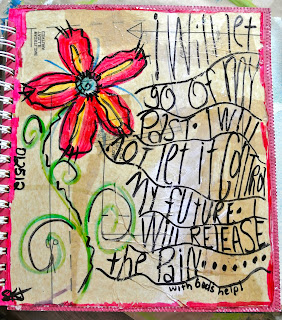 I Will let
go of my
Past. I Will
not let it Control
my future.
I Will RELEASE
the Pain......
with Gods help!